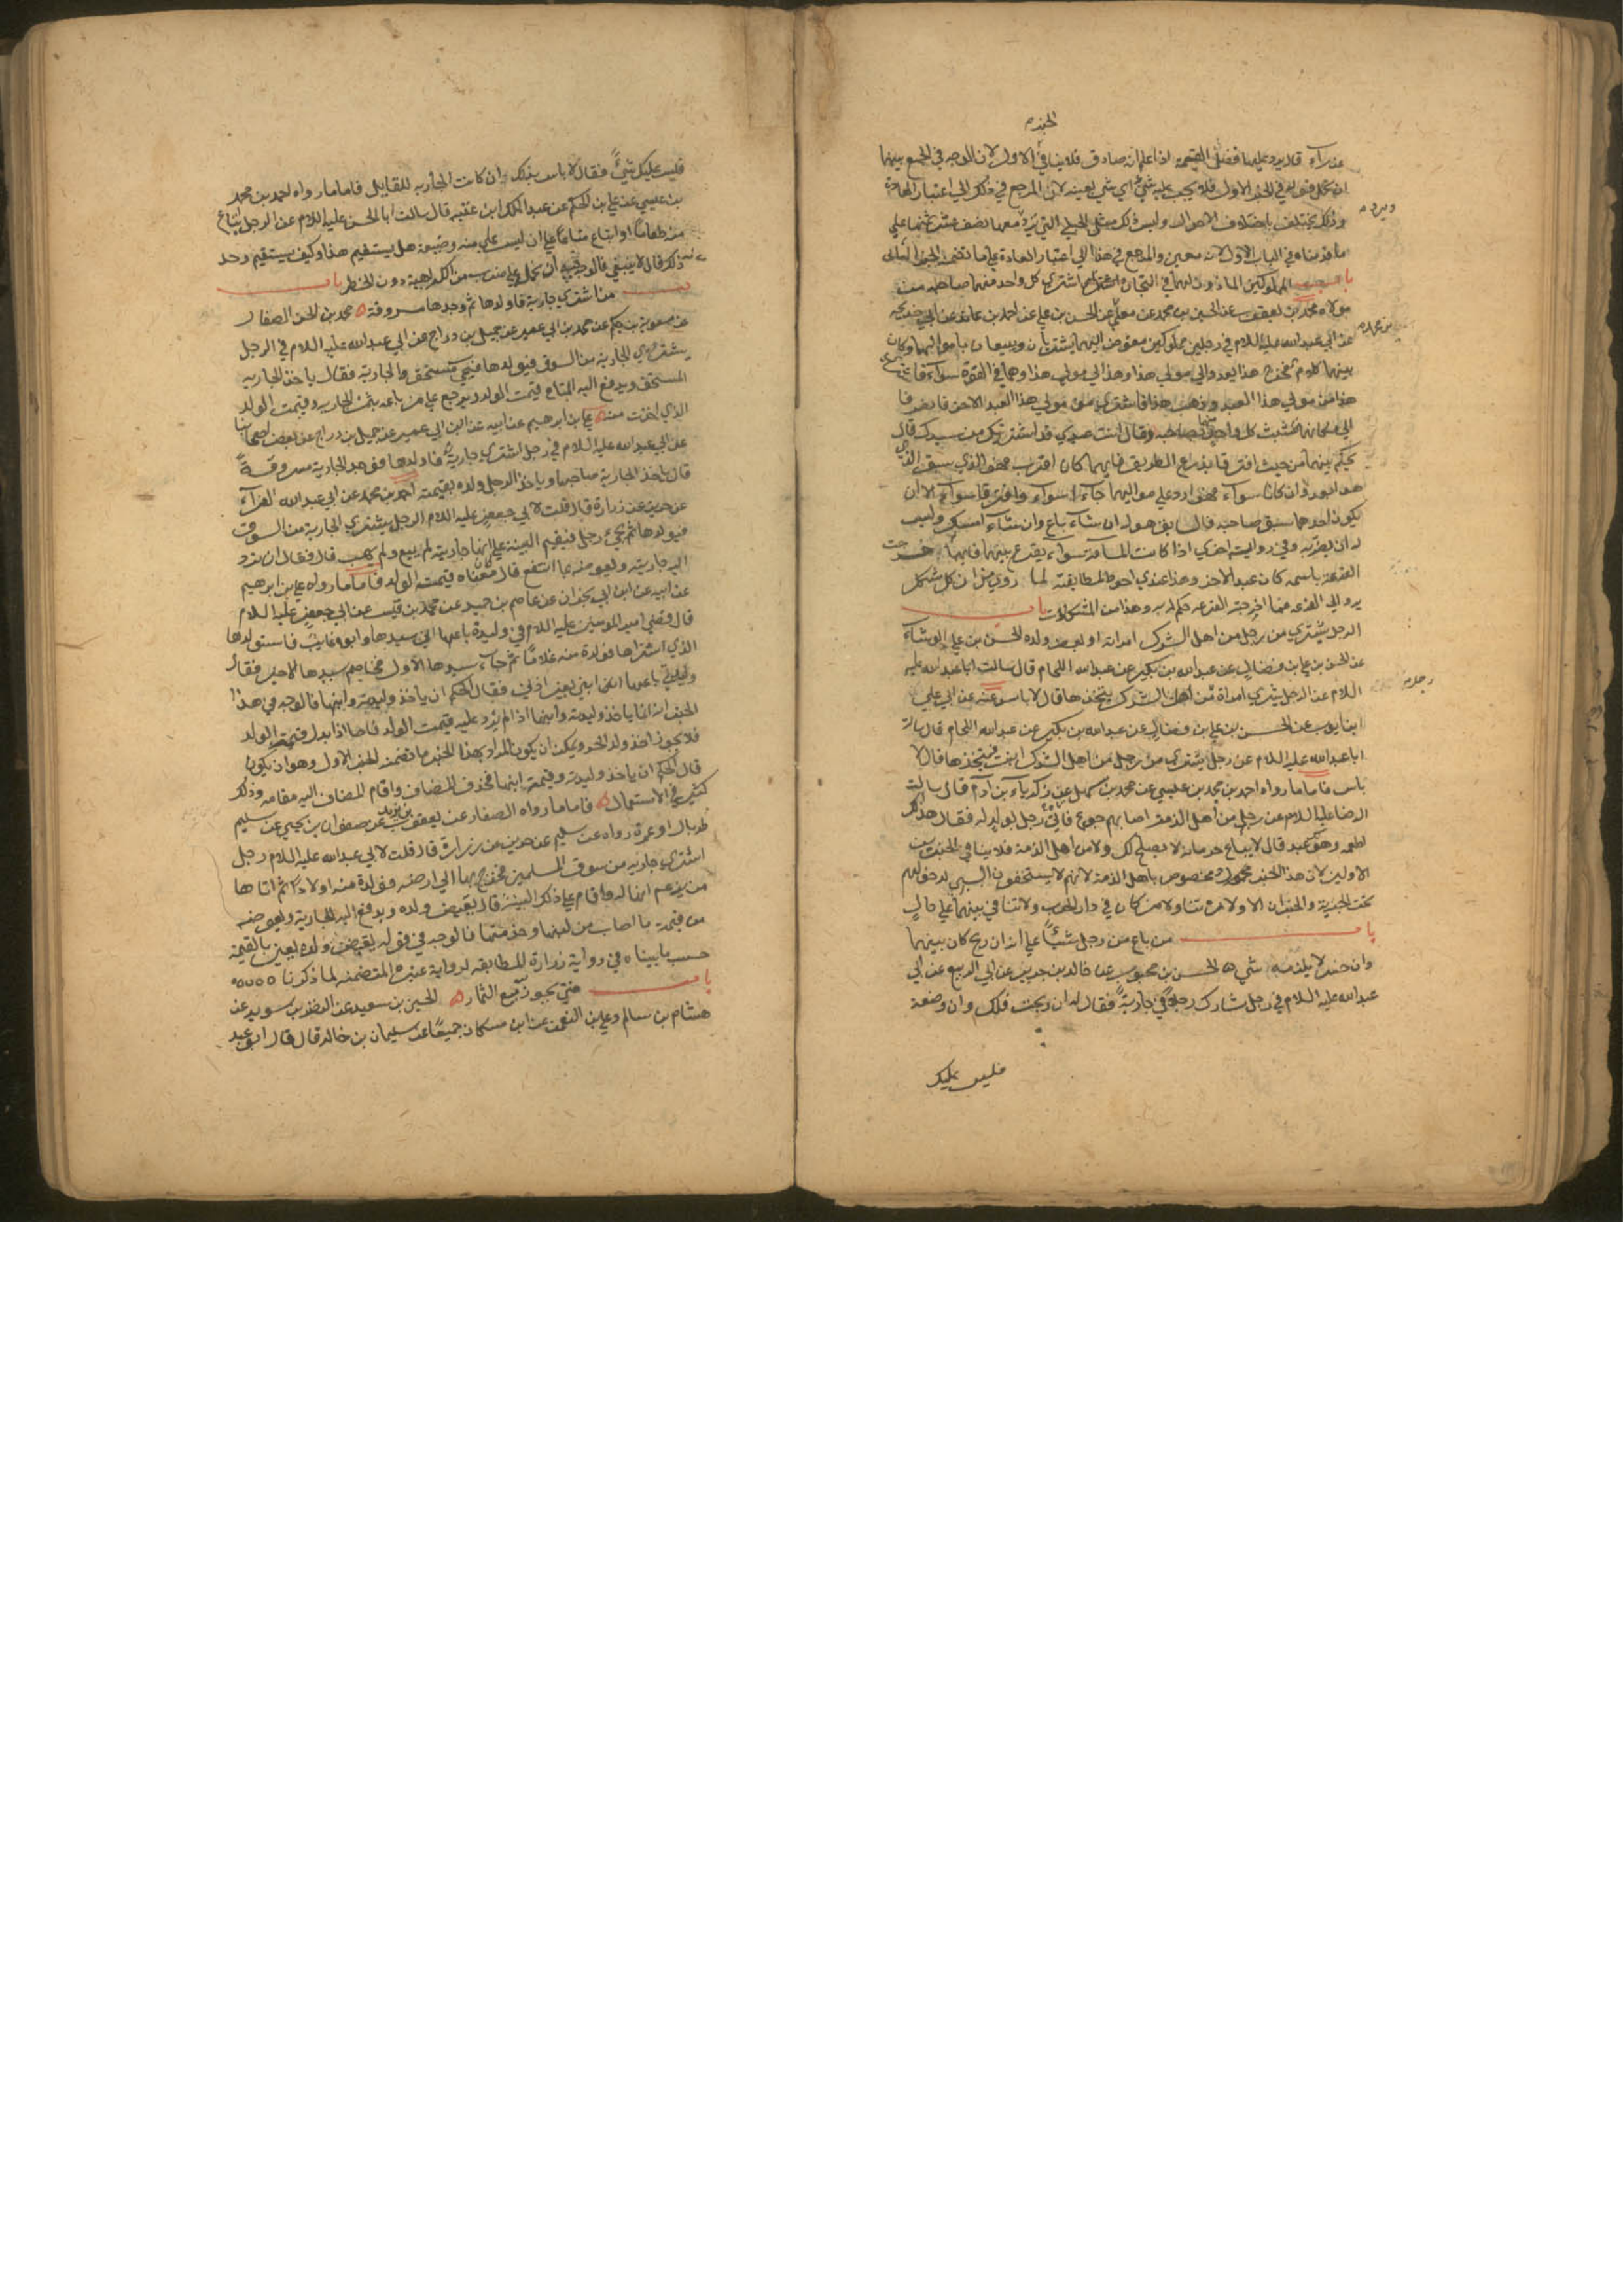 الخبرم
عن رآه قلايد وعليها فضل القيمة اذا علم انه صادق فلا ينافي الاول لان الوجه في الجمع بينهما
ان نحمل قوله في الخبر الاول فلا يجب عليه شي اي شي بعينه لان المرجع في ذلك الي اعتبار العادة
وذلك يختلف باختلاف الاحوال وليس ذلك مثل الحبلي التي يرد معها نصف عشر ثمنها علي
ما قدمناه في الباب الاول لانه معين والمرجع في هذا الي اعتبار العادة علي ما تضمنه الخبر
باب المملوكين الماذون لهما في التجارة اشتري كل واحد منهما صاحبه من
مولاه محمد بن يعقوب عن الحسين بن محمد عن معلي عن الحسن بن علي عن احمد بن عايذ عن ابي خديجة
عن ابي عبدالله عليه السلام في رجلين مملوكين مفوض اليهما يشتريان ويبيعان باموالهما وكان
بينهما كلام فخرج هذا يعدو الي مولي هذا وهذا الي مولي هذا وهما في القوة سواء فاشتري
هذا من مولي هذا العبد وذهب هذا فاشتري من مولي هذا العبد الاخر فانصرفا
الي مكانهما فتشبث كل واحد منهما بصاحبه وقال انت عبدي قد اشتريتك من سيدك قال
يحكم بينهما من حيث افترقا يذرع الطريق فايهما كان اقرب فهو الذي سبق الذي
هو ابعد وان كانا سواء فهو رد علي مواليهما جاءا سواء وافترقا سواء الا ان
يكون احدهما سبق صاحبه فالسابق هو له ان شاء باع وان شاء امسك وليس
له ان يضر به وفي رواية اخري اذا كانت المسافة سواء يقرع بينهما فايهما خرجت
القرعة باسمه كان عبد الاخر وهذا عندي احوط لمطابقته لما روي من ان كل مشكل
يرد الي القرعة فما اخرجته القرعة حكم له به وهذا من المشكلات باب
الرجل يشتري من رجل من اهل الشرك امراته او بعض ولده الحسن بن علي الوشاء
عن الحسن بن علي بن فضال عن عبدالله بن بكير عن عبدالله اللحام قال سالت ابا عبدالله عليه
السلام عن الرجل يشتري امراة من اهل الشرك يتخذها قال لا باس عنه عن ابي علي
ابن ايوب عن الحسن بن علي بن فضال عن عبدالله بن بكير عن عبدالله اللحام قال سالت
ابا عبدالله عليه السلام عن رجل يشتري من رجل من اهل الشرك ابنته فيتخذها قال لا
باس فاما ما رواه احمد بن محمد بن عيسي عن محمد بن سهل عن زكرياء بن آدم قال سالت
الرضا عليه السلام عن رجل من اهل الذمة اصابهم جوع فاتي رجل بولد له فقال هذا لك
اطعمه وهو لك عبد قال لا يباع حر فانه لا يصلح لك ولا من اهل الذمة فلا ينافي الخبرين
الاولين لان هذا الخبر مخصوص باهل الذمة لانهم لا يستحقون السبي لدخولهم
تحت الجزية والخبران الاولان تناولا من كان في دار الحرب ولا تنافي بينهما علي حال
باب من باع من رجل شيئاً علي انه ان ربح كان بينهما
وان خسر لا يلزمه شي ه الحسن بن محبوب عن خالد بن جرير عن ابي الربيع عن ابي
عبدالله عليه السلام في رجل شارك رجلا في جارية فقال له ان ربحت فلك وان وضعة
فليس عليك
فليس عليك شيءً فقال لا باس بذلك ان كانت الجارية للقايل فاما ما رواه احمد بن محمد
بن عيسي عن علي بن الحكم عن عبدالملك ابن عتبه قال سالت ابا الحسن عليه السلام عن الرجل يبتاع
منه طعاماً او ابتاع متاعا علي ان ليس علي منه وضيعة هل يستقيم هذا وكيف يستقيم وحد
ذلك قال لا ينبغي فالوجه فيه ان نحمله علي ضرب من الكراهية دون الحظر باب
من اشتري جارية فاولدها ثم وجدها مسروقة ه محمد بن الحسن الصفار
عن معوية بن حكيم عن محمد بن ابي عمير عن جميل بن دراج عن ابي عبدالله عليه السلام في الرجل
يشتري الجارية من السوق فيولدها فيجي مستحق الجارية فقال ياخذ الجارية
المستحق ويدفع اليه المبتاع قيمت الولد ويرجع علي من باعه بثمن الجارية وقيمت الولد
الذي اخذت منه ه علي بن ابرهيم عن ابيه عن ابن ابي عمير عن جميل بن دراج عن بعض اصحابنا
عن ابي عبدالله عليه السلام في رجل اشتري جارية فاولدها فوجد الجارية مسروقةً
قال ياخذ الجارية صاحبها وياخذ الرجل ولده بقيمته احمد بن محمد عن ابي عبدالله الفراء
عن حريز عن زرارة قال قلت لابي جعفر عليه السلام الرجل يشتري الجارية من السوق
فيولدها ثم يجيء رجل فيقيم البينة علي انها جاريته لم يبيع ولم يهب قال فقال ان يرد
اليه جاريته ويعوضه بما انتفع قال كان معناه قيمت الولد فاما ما رواه علي بن ابرهيم
عن ابيه عن ابن ابي نجران عن عاصم بن حميد عن محمد بن قيس عن ابي جعفر عليه السلام
قال قضي امير المومنين عليه السلام في وليدة باعها ابن سيدها وابوه غايب فاستولدها
الذي اشتراها فولدة منه غلاماً ثم جاء سيدها الاول فخاصم سيدها الاخر فقال
وليدتي باعها ابني بغير اذني فقال الحكم ان ياخذ وليدته وابنها فالوجه في هذا
الخبر انه انما ياخذ وليدته وابنها اذا لم يرد عليه قيمت الولد فاما اذا بذل قيمة الولد
فلا يجوز اخذ ولد الحر ويمكن ان يكون المراد بهذا الخبر ما تضمنه الخبر الاول وهو ان يكون
قال الحكم ان ياخذ وليدته وقيمة ابنها فحذف المضاف واقام المضاف اليه مقامه وذلك
كثير في الاستعمال ه فاما ما رواه الصفار عن يعقوب بن يزيد عن صفوان بن يحيي عن سليم
طربال او عمن رواه عن سليم عن حريز عن زرارة قال قلت لابي عبدالله عليه السلام رجل
اشتري جارية من سوق المسلمين فخرج بها الي ارضه فولدة منه اولادا ثم اتاها
من يزعم انها له واقام علي ذلك البينة قال يقبض ولده ويدفع اليه الجارية ويعوضه
من قيمة ما اصاب من لبنها وخدمتها فالوجه في قوله يقبض ولده يعني بالقيمة
حسب ما بيناه في رواية زرارة المطابقه لرواية غيره المتضمنه لما ذكرنا ه ه ه ه ه
باب متي يجوز بيع الثمار ه الحسين بن سعيد عن النضر بن سويد عن
هشام بن سالم وعلي بن النعمن عن ابن مسكان جميعاً عن سليمان بن خالد قال قال ابو عبد